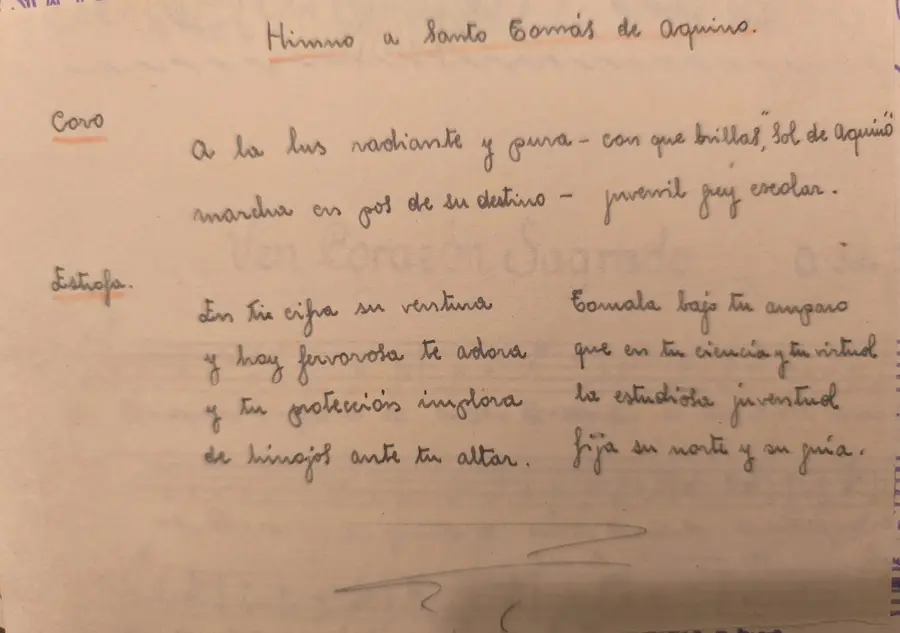 Himno a Santo Tomás de Aquino.
Coro
A la lus radiante y pura - con que brillas, "Sol de Aquino"
marcha en pos de su destino - juvenil grey escolar.
Estrofa.
En tí cifra su ventura
y hay fervorosa te adora
y tu protección implora
de hinojos ante tu altar.
Tomala bajo tu amparo
que en tu ciencia y tu virtud
la estudiosa juventud
fija su norte y su guía.